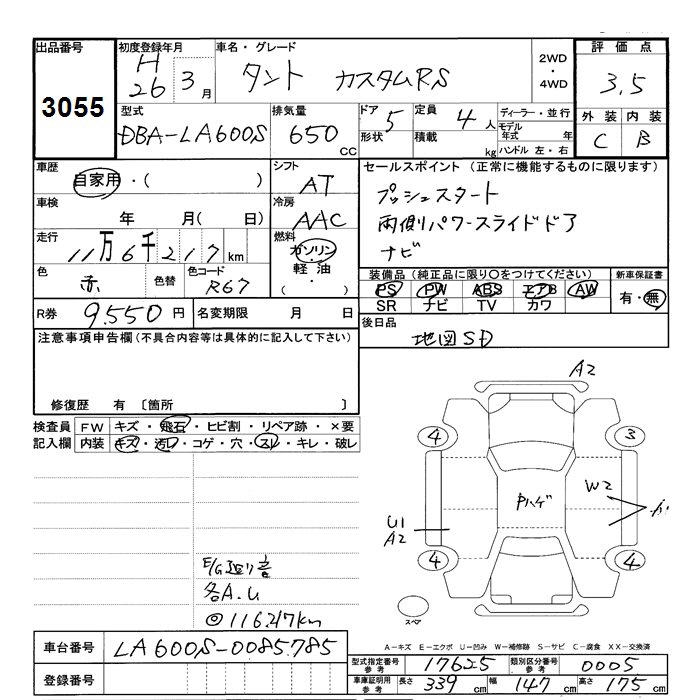 出品番号
3055
初度登録年月
H26 3月
車名・グレード
タント カスタムRS
2WD
・
4WD
評価点
3.5
外装 内装
C B
型式
DBA-LA600S
排気量
650 CC
ドア 5
形状
定員 4人
積載 kg
ディーラー・並行
モデル年式 年
ハンドル 左・右
車歴
自家用・( )
シフト
AT
セールスポイント(正常に機能するものに限ります)
プッシュスタート
両側パワースライドドア
ナビ
車検
年 月( 日)
冷房
AAC
走行
11万6千217km
燃料
ガソリン
軽油
( ・ )
色
赤
色替
色コード
R67
装備品(純正品に限り○をつけてください)
PS PW ABS エアB AW
SR ナビ TV カワ
新車保証書
有・無
R券 9.550円
名変期限 月 日
後日品
地図SD
注意事項申告欄(不具合内容等は具体的に記入して下さい)
修復歴 有〔箇所 〕
検査員記入欄
FW キズ・飛石・ヒビ割・リペア跡・×要
内装 キズ・汚レ・コゲ・穴・スレ・キレ・破レ
A2
4
3
W2
Pハゲ
U1
A2
4
4
スペア
E/G廻り音
各A.U
◎116217km
A-キズ E-エクボ U-凹み W-補修跡 S-サビ C-腐食 XX-交換済
車台番号 LA600S-0085785
登録番号
型式指定番号参考 17625
類別区分番号参考 0005
車庫証明用参考 長さ 339cm 幅 147cm 高さ 175cm